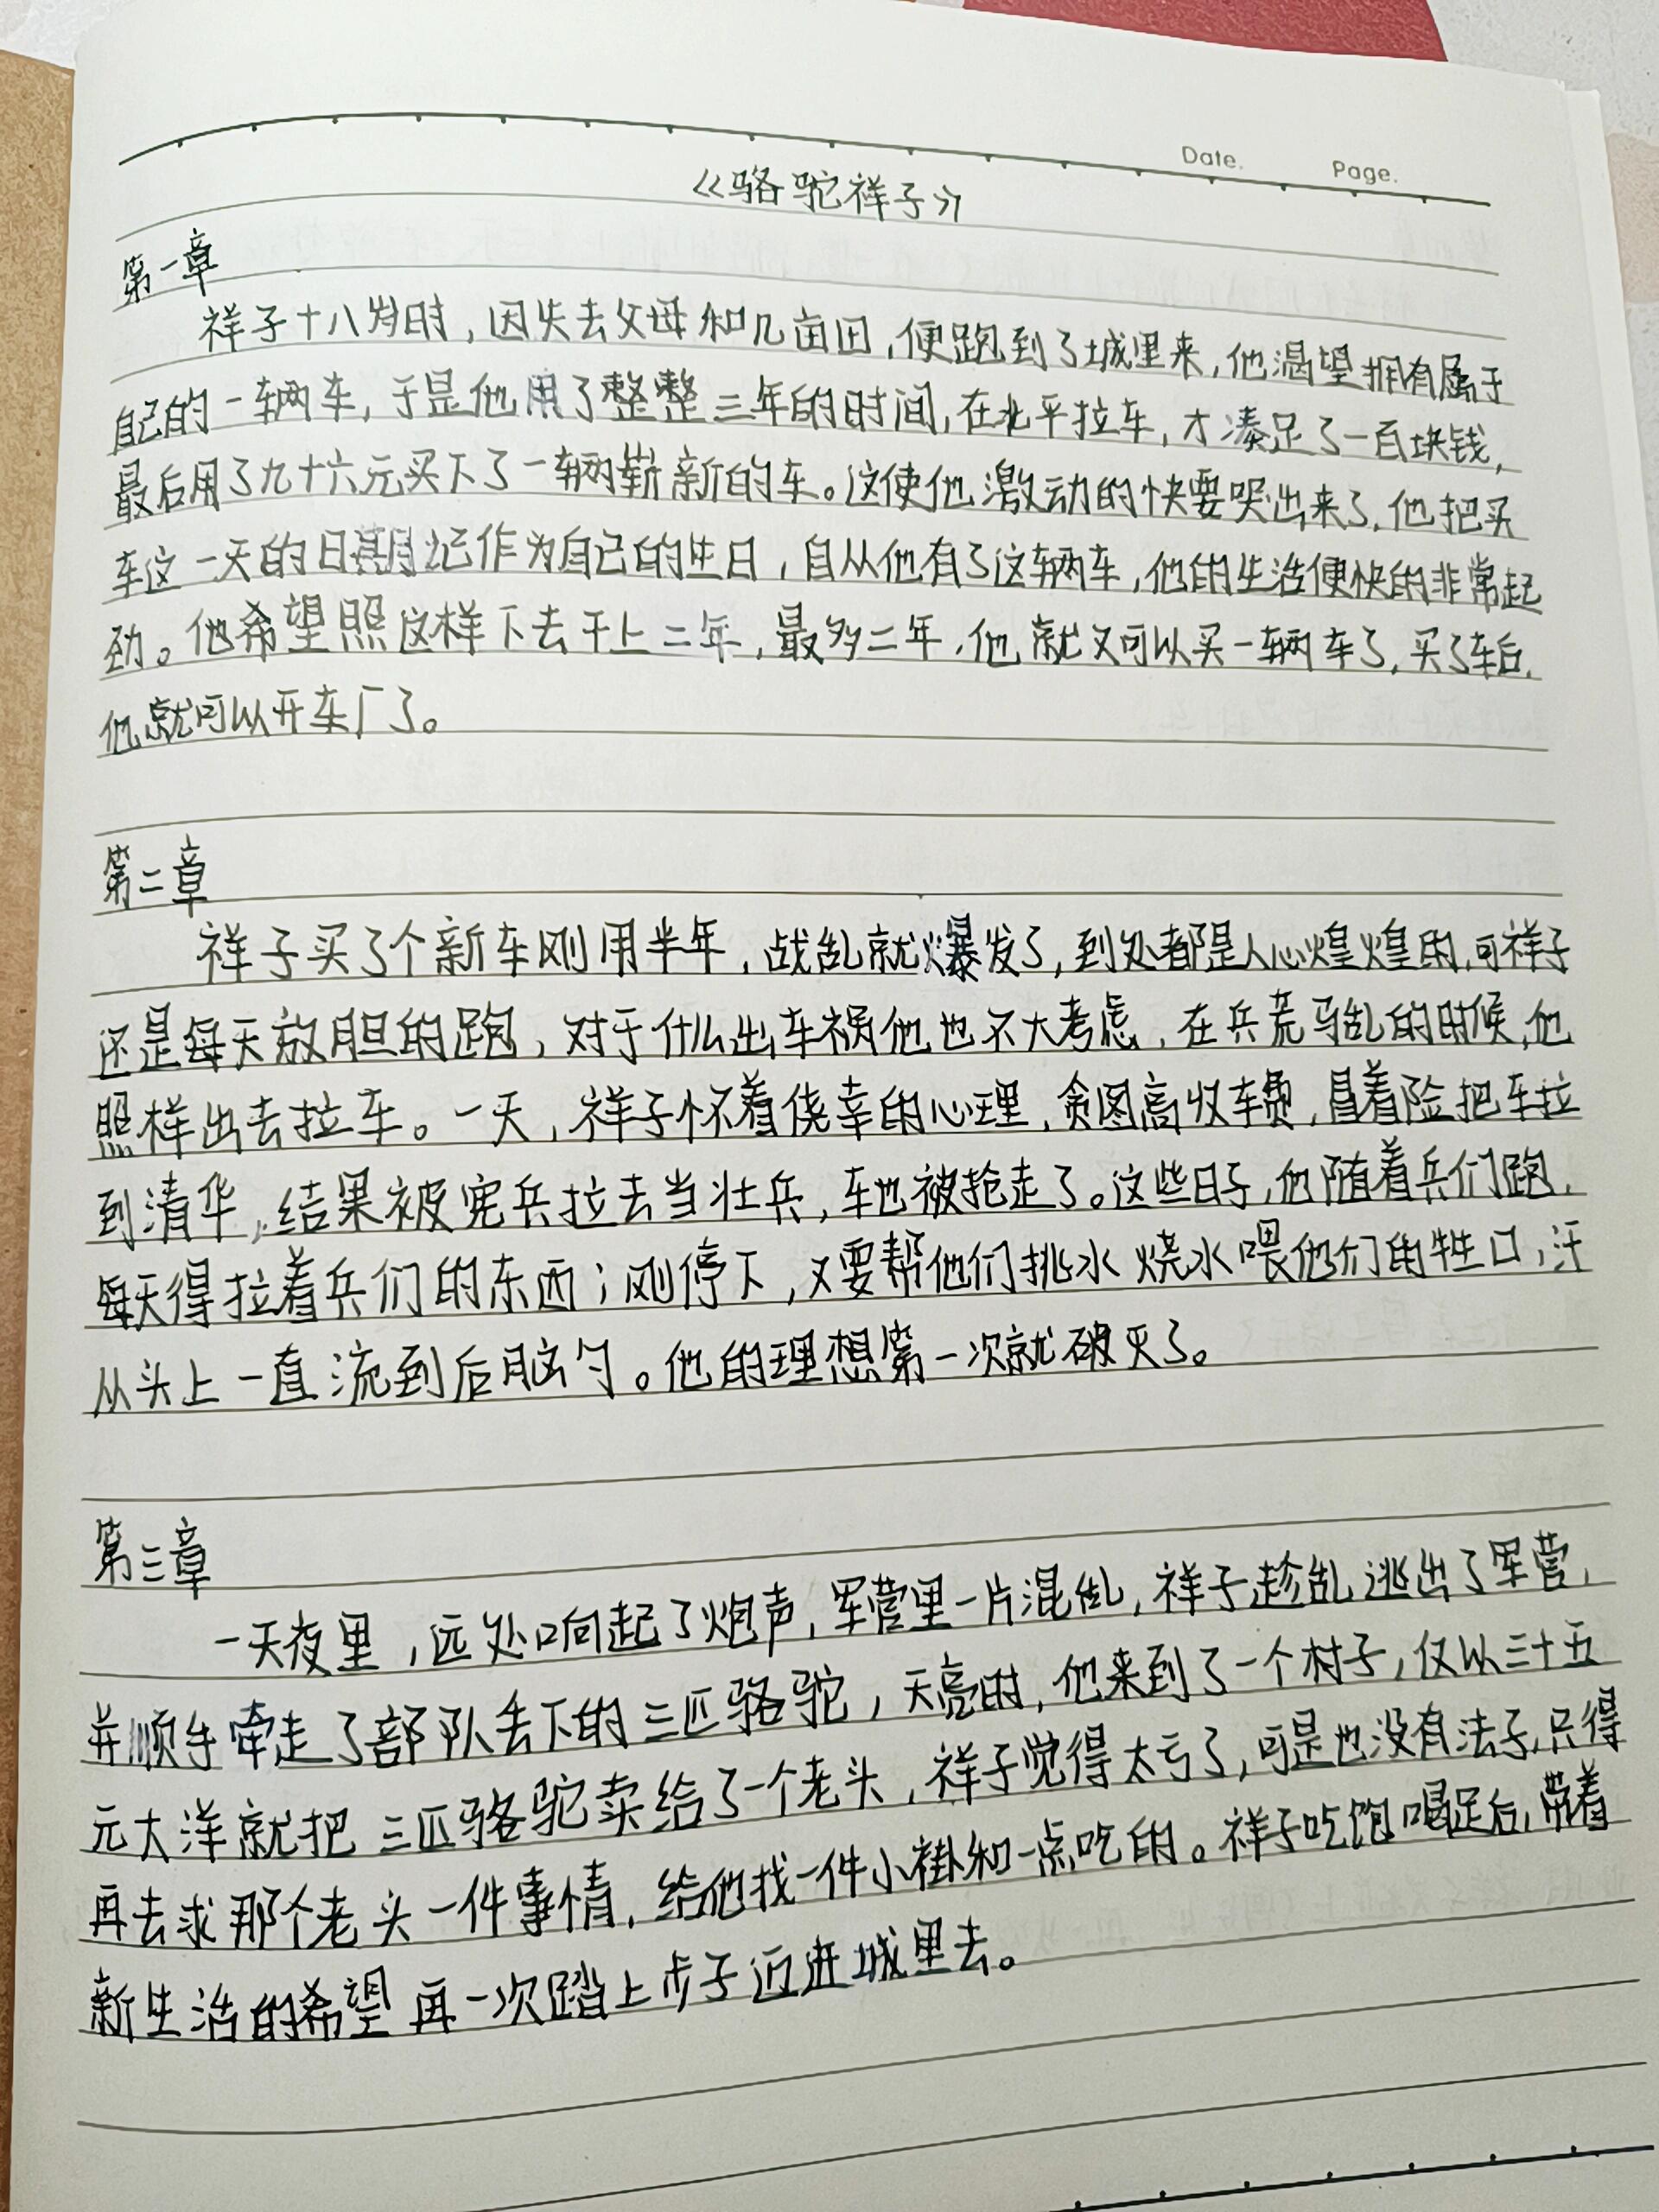 Date.
Page.
《骆驼祥子》
第一章
祥子十八岁时，因失去父母和几亩田，便跑到了城里来，他渴望拥有属于
自己的一辆车，于是他用了整整三年的时间，在北平拉车，才凑足了一百块钱，
最后用了九十六元买下了一辆崭新的车。这使他激动的快要哭出来了，他把买
车这一天的日期记作为自己的生日，自从他有了这辆车，他的生活便快的非常起
劲。他希望照这样下去干上二年，最多二年，他就又可以买一辆车了，买了车后，
他就可以开车厂了。
第二章
祥子买了个新车刚用半年，战乱就爆发了，到处都是人心煌煌的，可祥子
还是每天放胆的跑，对于什么出车祸他也不大考虑，在兵荒马乱的时候，他
照样出去拉车。一天，祥子怀着侥幸的心理，贪图高收车费，冒着险把车拉
到清华，结果被宪兵拉去当壮兵，车也被抢走了。这些日子，他随着兵们跑，
每天得拉着兵们的东西；刚停下，又要帮他们挑水烧水喂他们的牲口，汗
从头上一直流到后脑勺。他的理想第一次就破灭了。
第三章
一天夜里，远处响起了炮声，军营里一片混乱，祥子趁乱逃出了军营，
并顺手牵走了部队丢下的三匹骆驼，天亮时，他来到了一个村子，仅以三十五
元大洋就把三匹骆驼卖给了一个老头，祥子觉得太亏了，可是也没有法子，只得
再去求那个老头一件事情，给他找一件小褂和一点吃的。祥子吃饱喝足后，带着
新生活的希望再一次踏上步子迈进城里去。